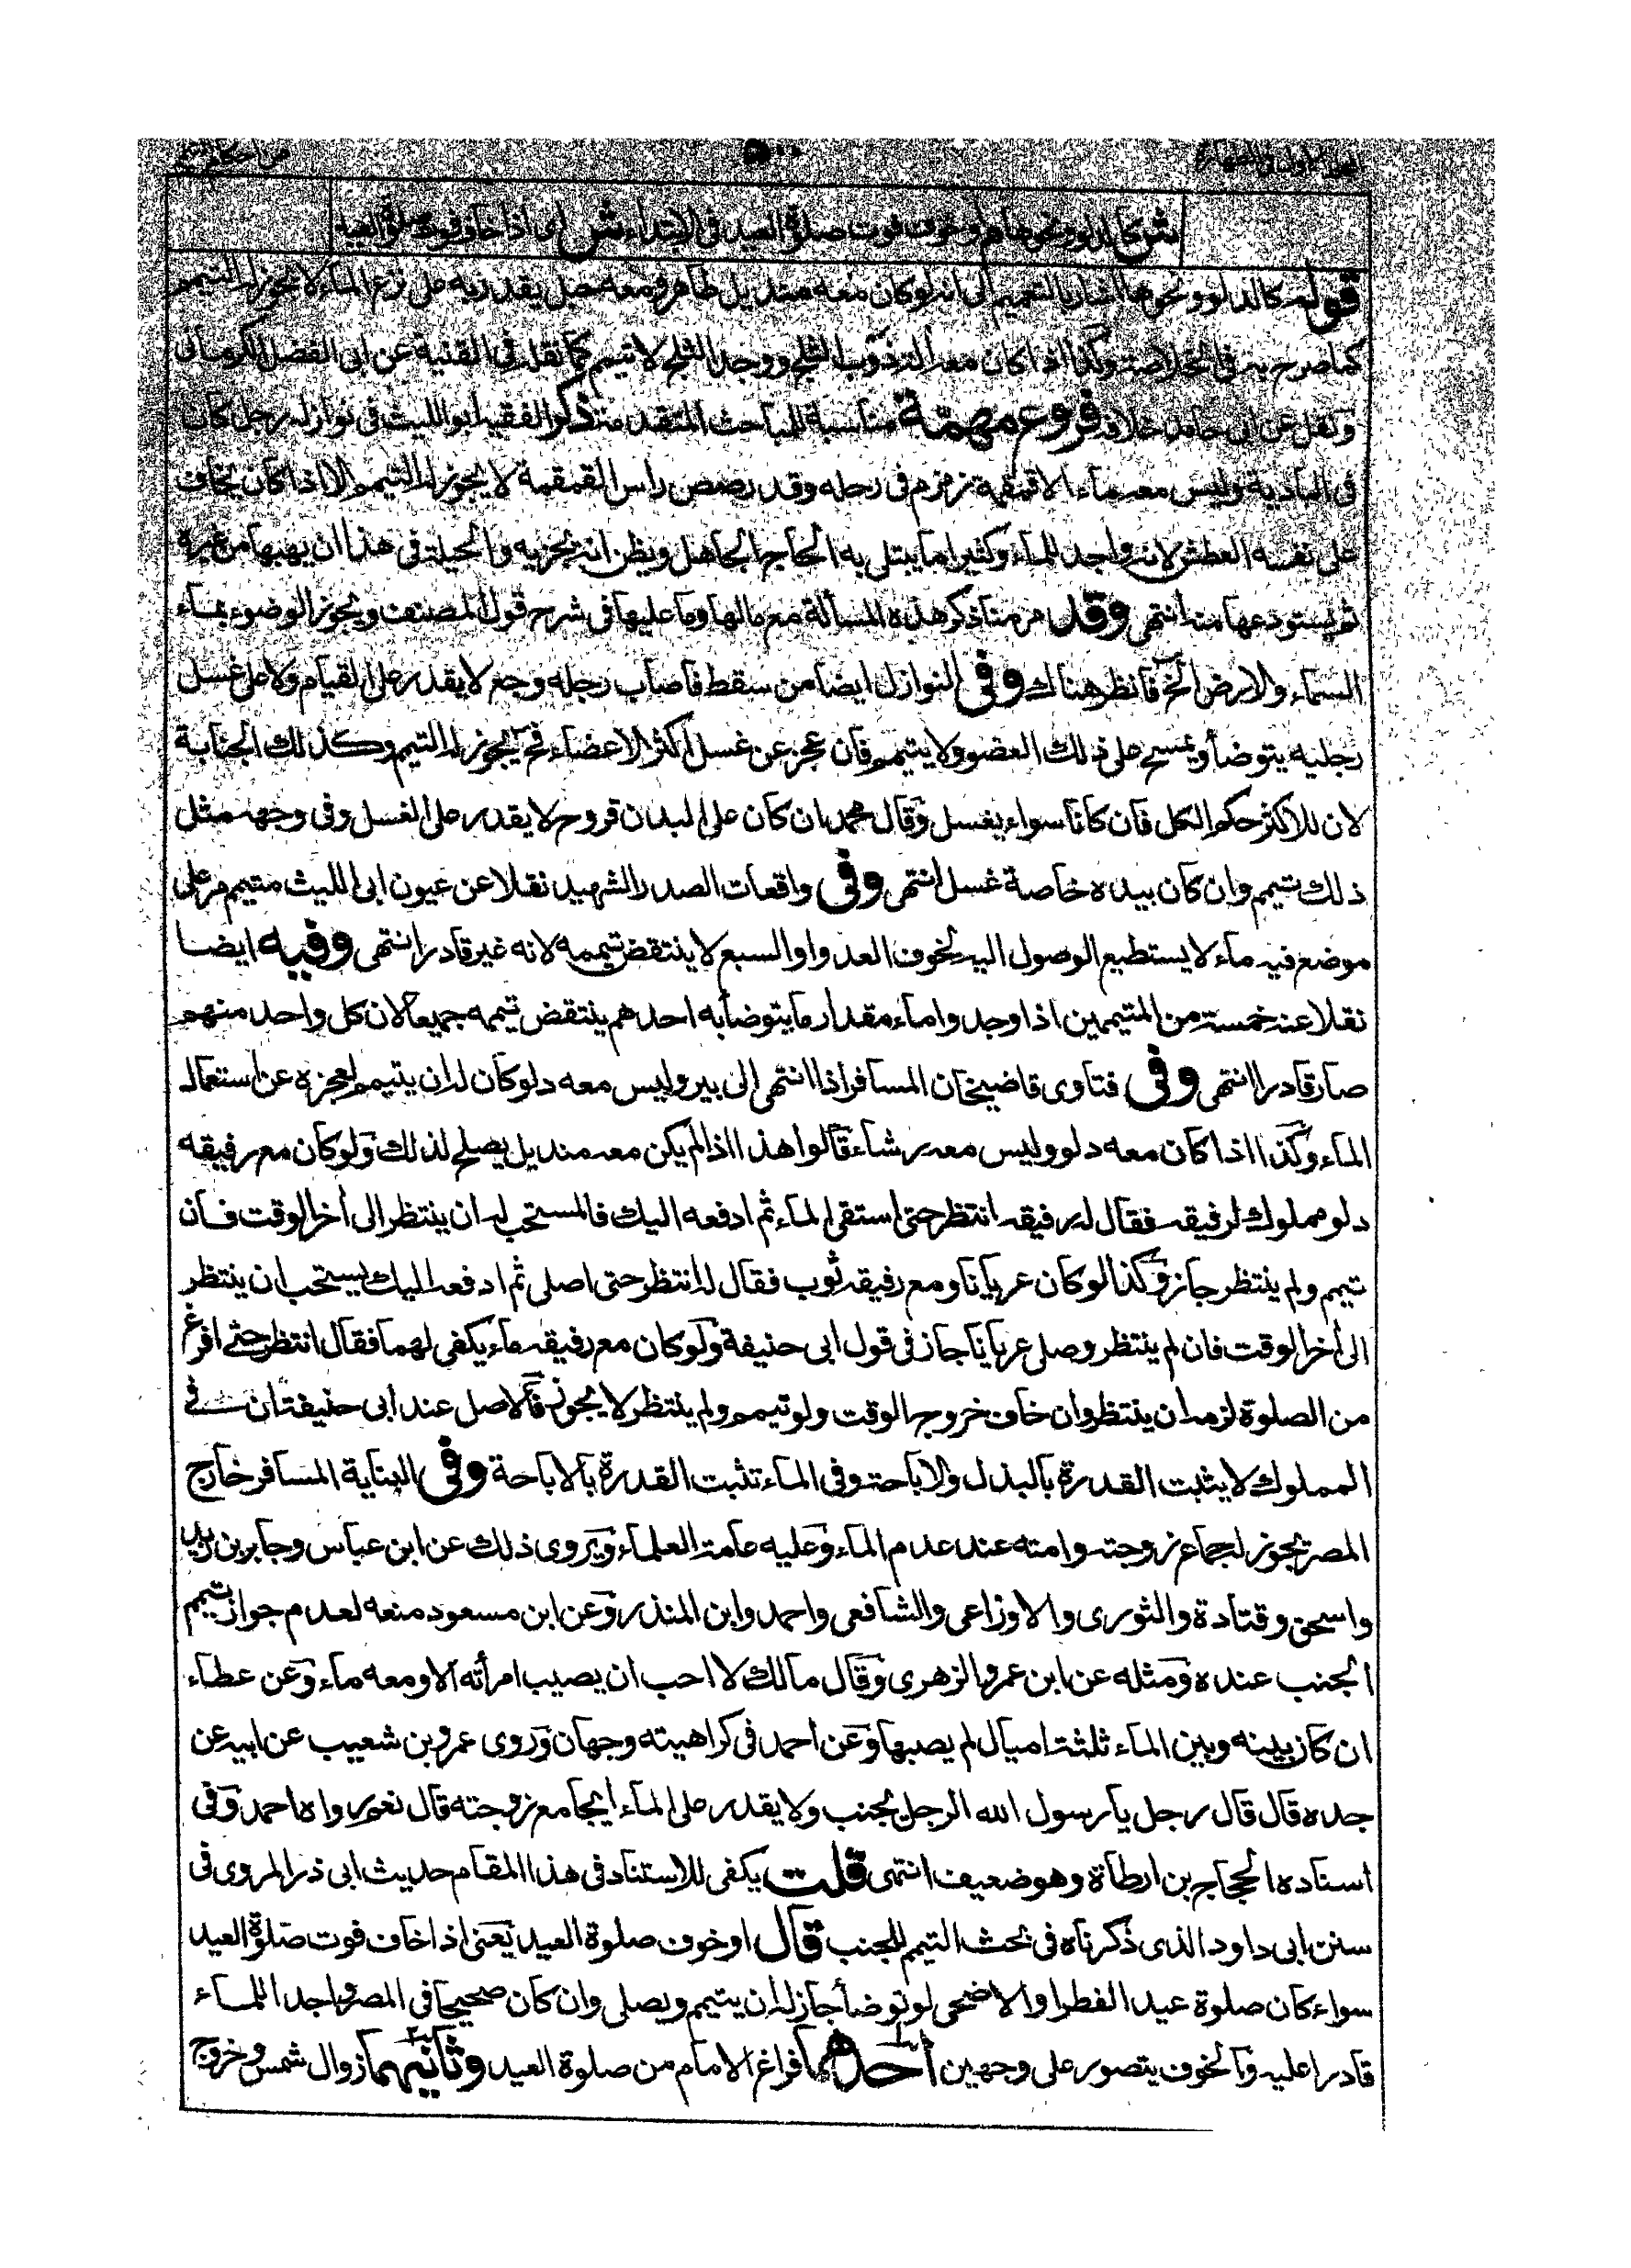 من احكام التيمم
٥٠٠
ش كالدلو ونحوها م وخوف فوت صلوة العيد فى الابتداء ش اى اذا خاف فوت صلوة العيد
قوله كالدلو ونحوها اشار بالتعميم الى انه لو كان معه منديل طاهر ومعه حبل يقدر به على نزع الماء لا يجوز له التيمم
كما صرح به فى الخلاصة وكذا اذا كان معه الة تذوب الثلج ووجد الثلج لا تيمم كما نقله فى القنية عن ابى الفضل الكرمانى
ونقل عن ابى حامد خلافه فروع مهمة مناسبة للمباحث المتقدمة ذكر الفقيه ابو الليث فى نوازله رجل كان
فى البادية وليس معه ماء الا قمقمة زمزم فى رحله وقد رصص راس القمقمة لا يجوز له التيمم الا اذا كان يخاف
على نفسه العطش لانه واجد للماء وكثيرا ما يبتلى به الحاج الجاهل ويظن انه يجزيه والحيلة فى هذا ان يهبها من غيره
ثم يستودعها منه انتهى وقد مر منا ذكر هذه المسألة مع مالها وما عليها فى شرح قول المصنف ويجوز الوضوء بماء
السماء والارض الخ فانظر هناك وفى النوازل ايضا من سقط فاصاب رجله وجع لا يقدر على القيام ولا على غسل
رجليه يتوضأ ويمسح على ذلك العضو ولا يتيمم فان عجز عن غسل اكثر الاعضاء فح يجوز له التيمم وكذلك الجنابة
لان للاكثر حكم الكل فان كانا سواء يغسل وقال محمد ان كان على البدن قروح لا يقدر على الغسل وفى وجهه مثل
ذلك تيمم وان كان بيده خاصة غسل انتهى وفى واقعات الصدر الشهيد نقلا عن عيون ابى الليث متيمم مر على
موضع فيه ماء لا يستطيع الوصول اليه لخوف العدو او السبع لا ينتقض تيممه لانه غير قادر انتهى وفيه ايضا
نقلا عنه خمسة من المتيممين اذا وجدوا ماء مقدار ما يتوضأ به احدهم ينتقض تيممه جميعا لان كل واحد منهم
صار قادرا انتهى وفى فتاوى قاضيخان المسافر اذا انتهى الى بير وليس معه دلو كان له ان يتيمم لعجزه عن استعمال
الماء وكذا اذا كان معه دلو وليس معه رشاء قالوا هذا اذا لم يكن معه منديل يصلح لذلك ولو كان مع رفيقه
دلو مملوك لرفيقه فقال له رفيقه انتظر حتى استقى الماء ثم ادفعه اليك فالمستحب له ان ينتظر الى أخر الوقت فان
تيمم ولم ينتظر جاز وكذا لو كان عريانا ومع رفيقه ثوب فقال له انتظر حتى اصلى ثم ادفعه اليك يستحب ان ينتظر
الى أخر الوقت فان لم ينتظر وصلى عريانا جاز فى قول ابى حنيفة ولو كان مع رفيقه ماء يكفى لهما فقال انتظر حتى افرغ
من الصلوة لزمه ان ينتظر وان خاف خروج الوقت ولو تيمم ولم ينتظر لا يجوز فالاصل عند ابى حنيفة ان فى
المملوك لا يثبت القدرة بالبذل والاباحة وفى الماء تثبت القدرة بالاباحة وفى البناية المسافر خارج
المصر يجوز له جماع زوجته وامته عند عدم الماء وعليه عامة العلماء ويروى ذلك عن ابن عباس وجابر بن زيد
واسحق وقتادة والثورى والاوزاعى والشافعى واحمد وابن المنذر وعن ابن مسعود منعه لعدم جواز تيمم
الجنب عنده ومثله عن ابن عمر والزهري وقال مالك لا احب ان يصيب امرأته الا ومعه ماء وعن عطاء
ان كان بينه وبين الماء ثلثة اميال لم يصبها وعن احمد فى كراهيته وجهان وروى عمرو بن شعيب عن ابيه عن
جده قال قال رجل يا رسول الله الرجل يجنب ولا يقدر على الماء ايجامع زوجته قال نعم رواه احمد وفى
اسناده الحجاج بن ارطاة وهو ضعيف انتهى قلت يكفى للاستناد فى هذا المقام حديث ابى ذر المروى فى
سنن ابى داود الذى ذكرناه فى بحث التيمم للجنب قال او خوف صلوة العيد يعنى اذا خاف فوت صلوة العيد
سواء كان صلوة عيد الفطر او الاضحى لو توضأ جاز له ان يتيمم ويصلى وان كان صحيحا فى المصر واجدا للماء
قادرا عليه والخوف يتصور على وجهين احدهما فراغ الامام من صلوة العيد وثانيهما زوال شمس وخروج